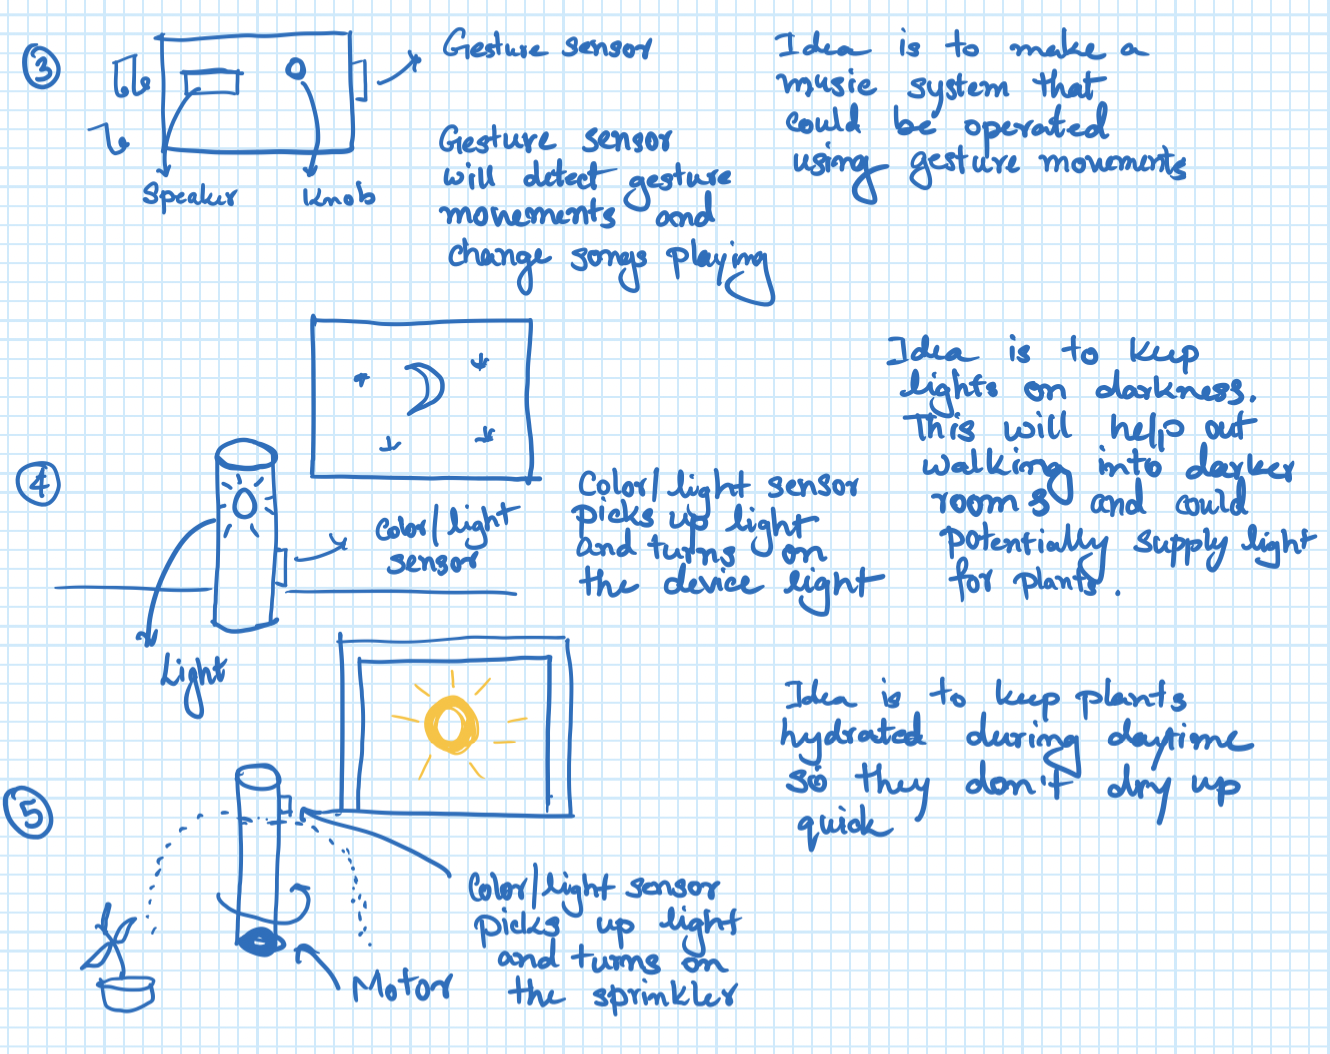 3
Gesture sensor
Speaker
Knob
Gesture sensor
will detect gesture
movements and
change songs playing
Idea is to make a
music system that
could be operated
using gesture movements
4
Light
Color/light
sensor
Color/light sensor
picks up light
and turns on
the device light
Idea is to keep
lights on darkness.
This will help out
walking into darker
rooms and could
potentially supply light
for plants.
5
Motor
Color/light sensor
picks up light
and turns on
the sprinkler
Idea is to keep plants
hydrated during daytime
so they don't dry up
quick